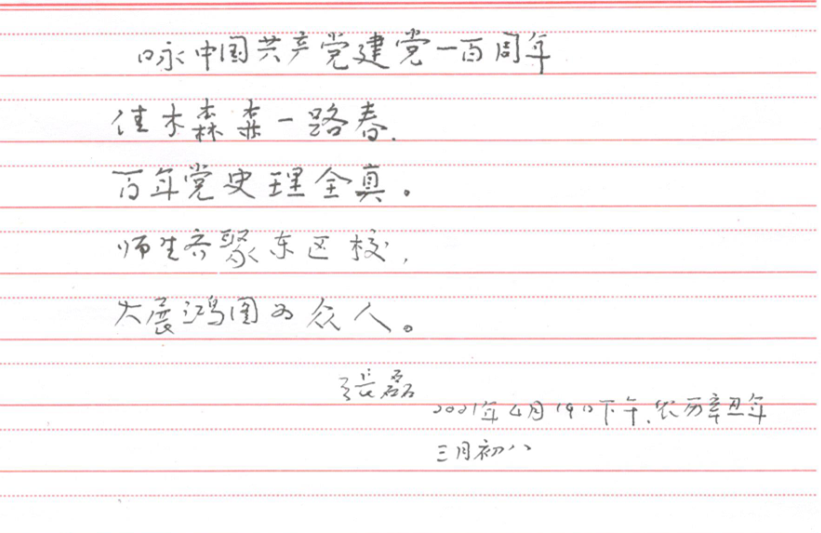 咏中国共产党建党一百周年
佳木森森一路春,
百年党史理全真。
师生齐聚东区校,
大展鸿图为众人。
張磊
2021年4月19日下午,农历辛丑年
三月初八